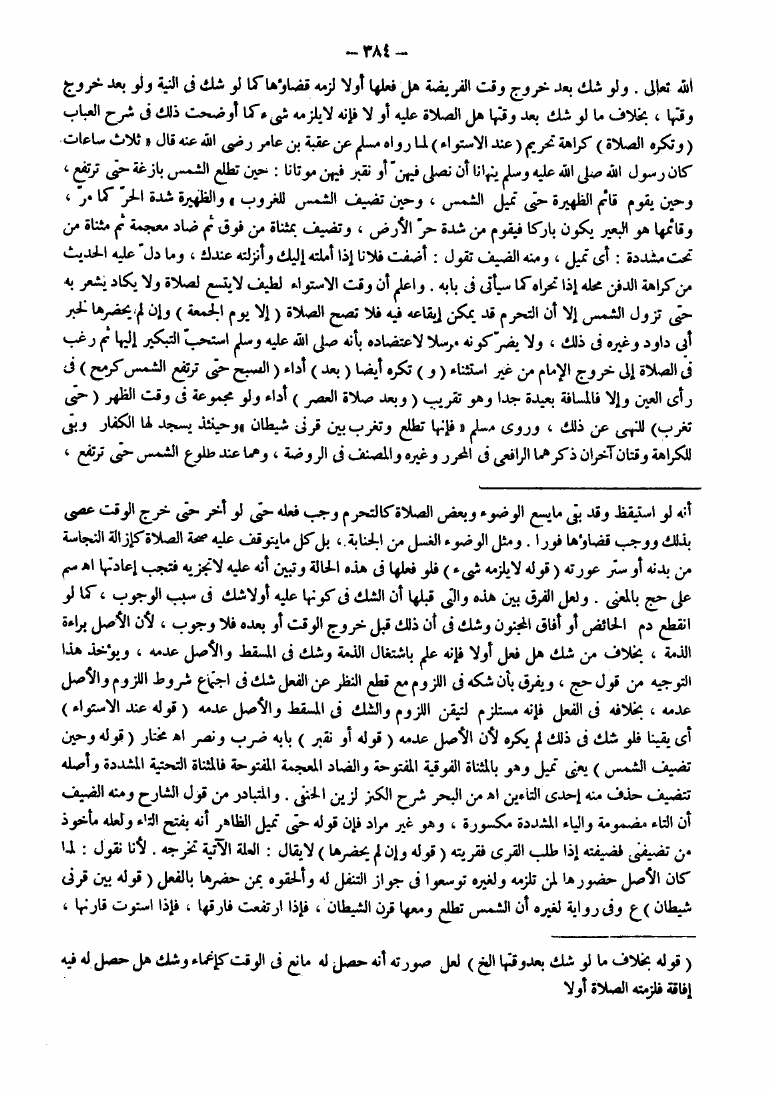 — ٣٨٤ —
الله تعالى . ولو شك بعد خروج وقت الفريضة هل فعلها أولا لزمه قضاؤها كما لو شك فى النية ولو بعد خروج
وقتها ، بخلاف ما لو شك بعد وقتها هل الصلاة عليه أو لا فإنه لايلزمه شىء كما أوضحت ذلك فى شرح العباب
( وتكره الصلاة ) كراهة تحريم ( عند الاستواء ) لما رواه مسلم عن عقبة بن عامر رضى الله عنه قال « ثلاث ساعات
كان رسول الله صلى الله عليه وسلم ينهانا أن نصلى فيهنّ أو نقبر فيهن موتانا : حين تطلع الشمس بازغة حتى ترتفع ،
وحين يقوم قائم الظهيرة حتى تميل الشمس ، وحين تضيف الشمس للغروب » والظهيرة شدة الحرّ كما مرّ ،
وقائمها هو البعير يكون باركا فيقوم من شدة حرّ الأرض ، وتضيف بمثناة من فوق ثم ضاد معجمة ثم مثناة من
تحت مشددة : أى تميل ، ومنه الضيف تقول : أضفت فلانا إذا أملته إليك وأنزلته عندك ، وما دلّ عليه الحديث
من كراهة الدفن محله إذا تحراه كما سيأتى فى بابه . واعلم أن وقت الاستواء لطيف لايتسع لصلاة ولا يكاد يشعر به
حتى تزول الشمس إلا أن التحرم قد يمكن إيقاعه فيه فلا تصح الصلاة ( إلا يوم الجمعة ) وإن لم يحضرها لخبر
أبى داود وغيره فى ذلك ، ولا يضرّ كونه مرسلا لاعتضاده بأنه صلى الله عليه وسلم استحبّ التبكير إليها ثم رغب
فى الصلاة إلى خروج الإمام من غير استثناء ( و ) تكره أيضا ( بعد ) أداء ( الصبح حتى ترتفع الشمس كرمح ) فى
رأى العين وإلا فالمسافة بعيدة جدا وهو تقريب ( وبعد صلاة العصر ) أداء ولو مجموعة فى وقت الظهر ( حتى
تغرب ) للنهى عن ذلك ، وروى مسلم « فإنها تطلع وتغرب بين قرنى شيطان » وحينئذ يسجد لها الكفار وبقى
للكراهة وقتان آخران ذكرهما الرافعى فى المحرر وغيره والمصنف فى الروضة ، وهما عند طلوع الشمس حتى ترتفع ،
أنه لو استيقظ وقد بقى مايسع الوضوء وبعض الصلاة كالتحرم وجب فعله حتى لو أخر حتى خرج الوقت عصى
بذلك ووجب قضاؤها فورا . ومثل الوضوء الغسل من الجنابة ، بل كل مايتوقف عليه صحة الصلاة كإزالة النجاسة
من بدنه أو ستر عورته ( قوله لايلزمه شىء ) فلو فعلها فى هذه الحالة وتبين أنه عليه لاتجزيه فتجب إعادتها اه سم
على حج بالمعنى . ولعل الفرق بين هذه والتى قبلها أن الشك فى كونها عليه أولاشك فى سبب الوجوب ، كما لو
انقطع دم الحائض أو أفاق المجنون وشك فى أن ذلك قبل خروج الوقت أو بعده فلا وجوب ، لأن الأصل براءة
الذمة ، بخلاف من شك هل فعل أولا فإنه علم باشتغال الذمة وشك فى المسقط والأصل عدمه ، ويؤخذ هذا
التوجيه من قول حج ، ويفرق بأن شكه فى اللزوم مع قطع النظر عن الفعل شك فى اجتماع شروط اللزوم والأصل
عدمه ، بخلافه فى الفعل فإنه مستلزم لتيقن اللزوم والشك فى المسقط والأصل عدمه ( قوله عند الاستواء )
أى يقينا فلو شك فى ذلك لم يكره لأن الأصل عدمه ( قوله أو نقبر ) بابه ضرب ونصر اه مختار ( قوله وحين
تضيف الشمس ) يعنى تميل وهو بالمثناة الفوقية المفتوحة والضاد المعجمة المفتوحة فالمثناة التحتية المشددة وأصله
تتضيف حذف منه إحدى التاءين اه من البحر شرح الكنز لزين الحنفى . والمتبادر من قول الشارح ومنه الضيف
أن التاء مضمومة والياء المشددة مكسورة ، وهو غير مراد فإن قوله حتى تميل الظاهر أنه بفتح التاء ولعله مأخوذ
من تضيفنى فضيفته إذا طلب القرى فقريته ( قوله وإن لم يحضرها ) لايقال : العلة الآتية تخرجه . لأنا نقول : لما
كان الأصل حضورها لمن تلزمه ولغيره توسعوا فى جواز التنفل له وألحقوه بمن حضرها بالفعل ( قوله بين قرنى
شيطان ) ع وفى رواية لغيره أن الشمس تطلع ومعها قرن الشيطان ، فإذا ارتفعت فارقها ، فإذا استوت قارنها ،
( قوله بخلاف ما لو شك بعدوقتها الخ ) لعل صورته أنه حصل له مانع فى الوقت كإغماء وشك هل حصل له فيه
إفاقة فلزمته الصلاة أولا